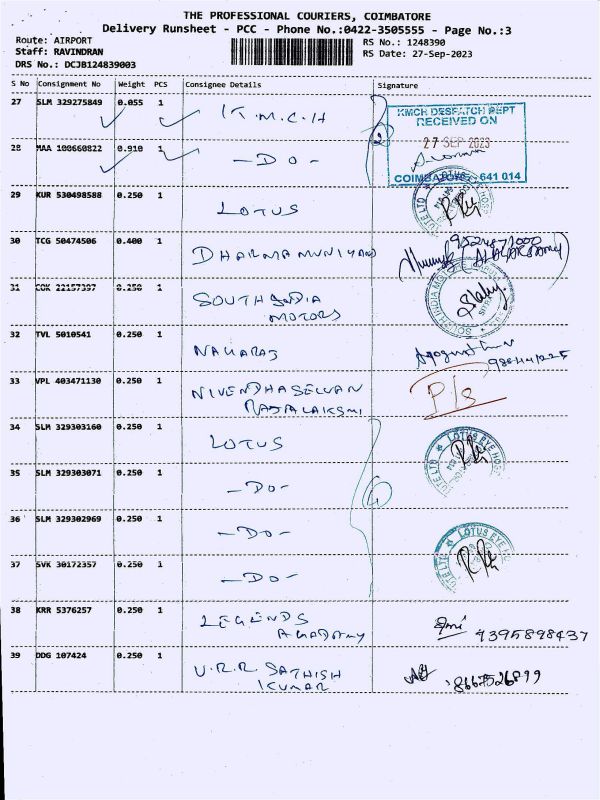 THE PROFESSIONAL COURIERS, COIMBATORE
Delivery Runsheet - PCC - Phone No.:0422-3505555 - Page No.:3
Route: AIRPORT
Staff: RAVINDRAN
DRS No.: DCJB124839003
RS No.: 1248390
RS Date: 27-Sep-2023
S No Consignment No Weight PCS Consignee Details Signature
27 SLM 329275849 0.055 1 K.M.C.H
KMCH DESPATCH DEPT
RECEIVED ON
27 SEP 2023
COIMBATORE - 641 014
28 MAA 100660822 0.910 1 -DO-
29 KUR 530498588 0.250 1 LOTUS
30 TCG 50474506 0.400 1 DHARMAMUNIYAN
31 COK 22157397 0.250 1 SOUTH INDIA
MOTORS
32 TVL 5010541 0.250 1 NAGARAJ
33 VPL 403471130 0.250 1 NIVENDHASELVAN
RAJALAKSMI
P/s
34 SLM 329303160 0.250 1 LOTUS
LOTUS EYE HOS
35 SLM 329303071 0.250 1 -DO-
36 SLM 329302969 0.250 1 -DO-
LOTUS EYE HO
37 SVK 30172357 0.250 1 -DO-
38 KRR 5376257 0.250 1 LEGENDS
ACADAMY
9395898437
39 DDG 107424 0.250 1 U.R.R SATHISH
KUMAR
8667526899